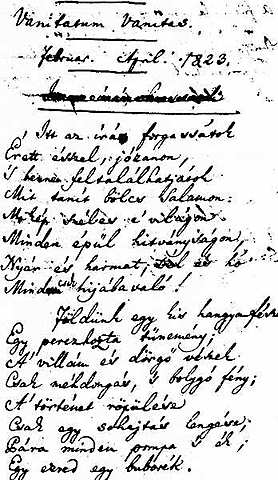 Vanitatum Vanitas.
Februar. April. 1823.
Itt az írás forgassátok
Érett ésszel, józanon,
S benne feltalálhatjátok
Mit tanít bölcs Salamon:
Mikép széles e' világon
Minden épül hitványságon,
Nyár és harmat, tél és hó
Mind csak hijábavaló!
Földünk egy kis hangyafészek
Egy perczhozta tünemény,
A' villám és dörgő vészek
Csak méhdongás, 's bolygó fény;
A' történet röpülése
Csak egy sohajtás lengése;
Pára minden pompa 's ék;
Egy ezred egy buborék.